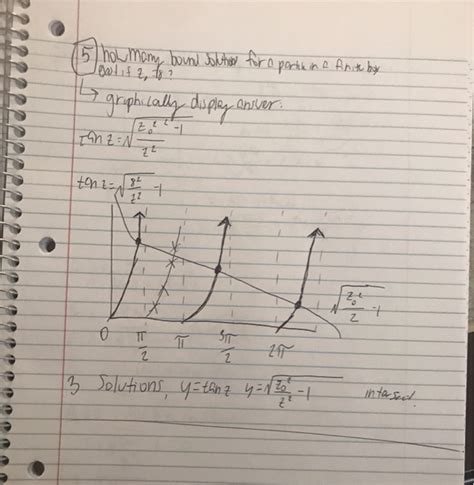 5) how many bound solutions for a particle in a finite box
if z₀ 8?
↳ graphically display answer.
tan z = √(z₀² -1 / z²)
tan z = √(8²/z² -1)
√(z₀²/z -1)
0 π/2 π 3π/2 2π
3 Solutions, y=tan z y=√(z₀²/z² -1) intersect